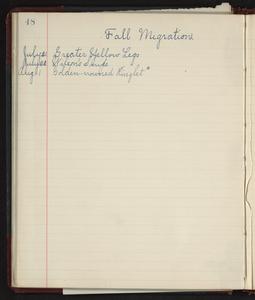 48
Fall Migration
July Greater Yellow Legs
July Wilson's Snipe
Aug 1 Golden-crowned Kinglet*